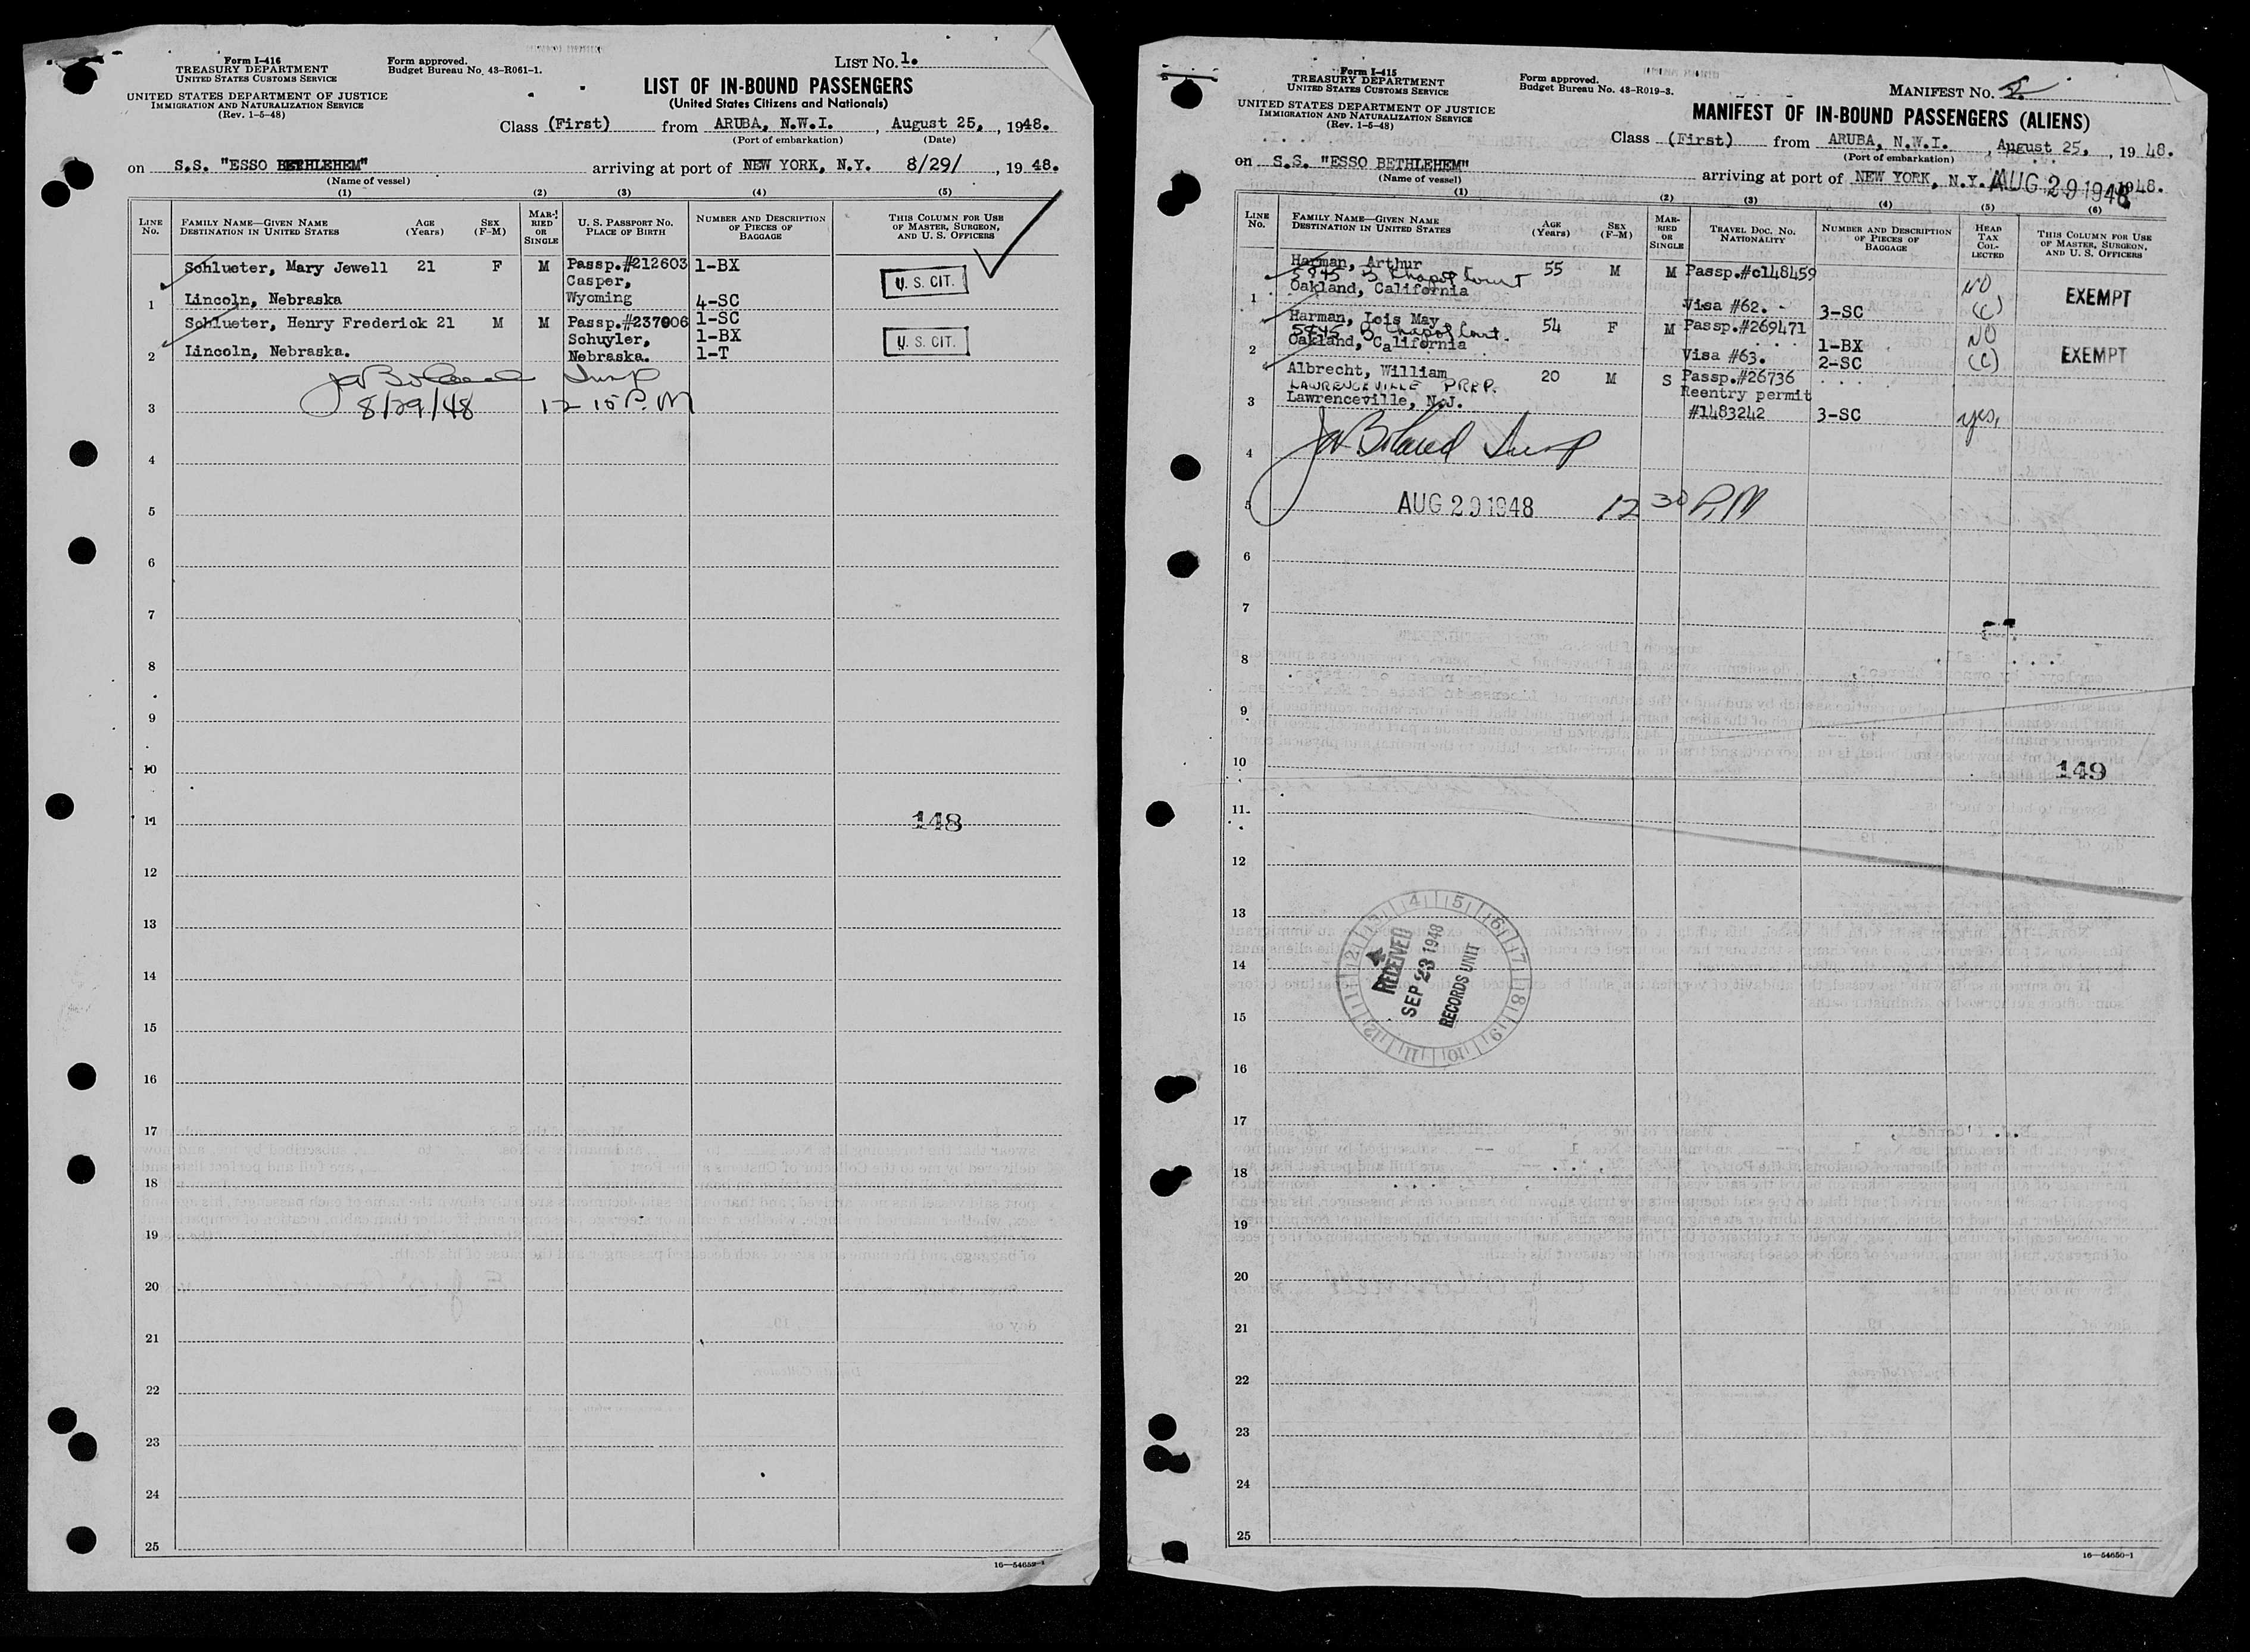 Form I-416
TREASURY DEPARTMENT
UNITED STATES CUSTOMS SERVICE
UNITED STATES DEPARTMENT OF JUSTICE
IMMIGRATION AND NATURALIZATION SERVICE
(Rev. 1-5-48)
Form approved.
Budget Bureau No. 43-R061-1.
LIST No. 1.
LIST OF IN-BOUND PASSENGERS
(United States Citizens and Nationals)
Class (First) from ARUBA, N.W.I. , August 25, , 1948.
(Port of embarkation) (Date)
on S.S. "ESSO BETHLEHEM" arriving at port of NEW YORK, N.Y. 8/29/ , 1948.
(Name of vessel)
(1) (2) (3) (4) (5)
LINE No. FAMILY NAME—GIVEN NAME DESTINATION IN UNITED STATES AGE (Years) SEX (F-M) MARRIED OR SINGLE U. S. PASSPORT NO. PLACE OF BIRTH NUMBER AND DESCRIPTION OF PIECES OF BAGGAGE THIS COLUMN FOR USE OF MASTER, SURGEON, AND U. S. OFFICERS
Schlueter, Mary Jewell 21 F M Passp.#212603 1-BX
Casper, U. S. CIT.
1 Lincoln, Nebraska Wyoming 4-SC
Schlueter, Henry Frederick 21 M M Passp.#237006 1-SC
Schuyler, 1-BX U. S. CIT.
2 Lincoln, Nebraska. Nebraska. 1-T
Insp
3 8/29/48 12 15 P.M
4
5
6
7
8
9
10
11 148
12
13
14
15
16
17
18
19
20
21
22
23
24
25
16—54652-1
Form I-415
TREASURY DEPARTMENT
UNITED STATES CUSTOMS SERVICE
UNITED STATES DEPARTMENT OF JUSTICE
IMMIGRATION AND NATURALIZATION SERVICE
(Rev. 1-5-48)
Form approved.
Budget Bureau No. 43-R019-3.
MANIFEST No.
MANIFEST OF IN-BOUND PASSENGERS (ALIENS)
Class (First) from ARUBA, N.W.I. , August 25, , 1948.
(Port of embarkation)
on S.S. "ESSO BETHLEHEM" arriving at port of NEW YORK, N.Y. AUG 29 1948 1948.
(Name of vessel)
(1) (2) (3) (4) (5) (6)
LINE No. FAMILY NAME—GIVEN NAME DESTINATION IN UNITED STATES AGE (Years) SEX (F-M) MARRIED OR SINGLE TRAVEL DOC. NO. NATIONALITY NUMBER AND DESCRIPTION OF PIECES OF BAGGAGE HEAD TAX COLLECTED THIS COLUMN FOR USE OF MASTER, SURGEON, AND U. S. OFFICERS
Harman, Arthur 55 M M Passp.#c148459
5845 B Chapel Court NO
1 Oakland, California Visa #62. 3-SC (C) EXEMPT
Harman, Lois May 54 F M Passp.#269471
5845 B Chapel Court. 1-BX NO
2 Oakland, California Visa #63. 2-SC (C) EXEMPT
Albrecht, William 20 M S Passp.#26736
LAWRENCEVILLE PREP. Reentry permit
3 Lawrenceville, N.J. #1483242 3-SC yes,
4 Insp
5 AUG 29 1948 12 30 P.M
6
7
8
9
10 149
11
12
13
14
15
16
17
18
19
20
21
22
23
24
25
RECEIVED
SEP 23 1948
RECORDS UNIT
1 2 3 4 5 6 7 8 9 10 11 12
16—54650-1